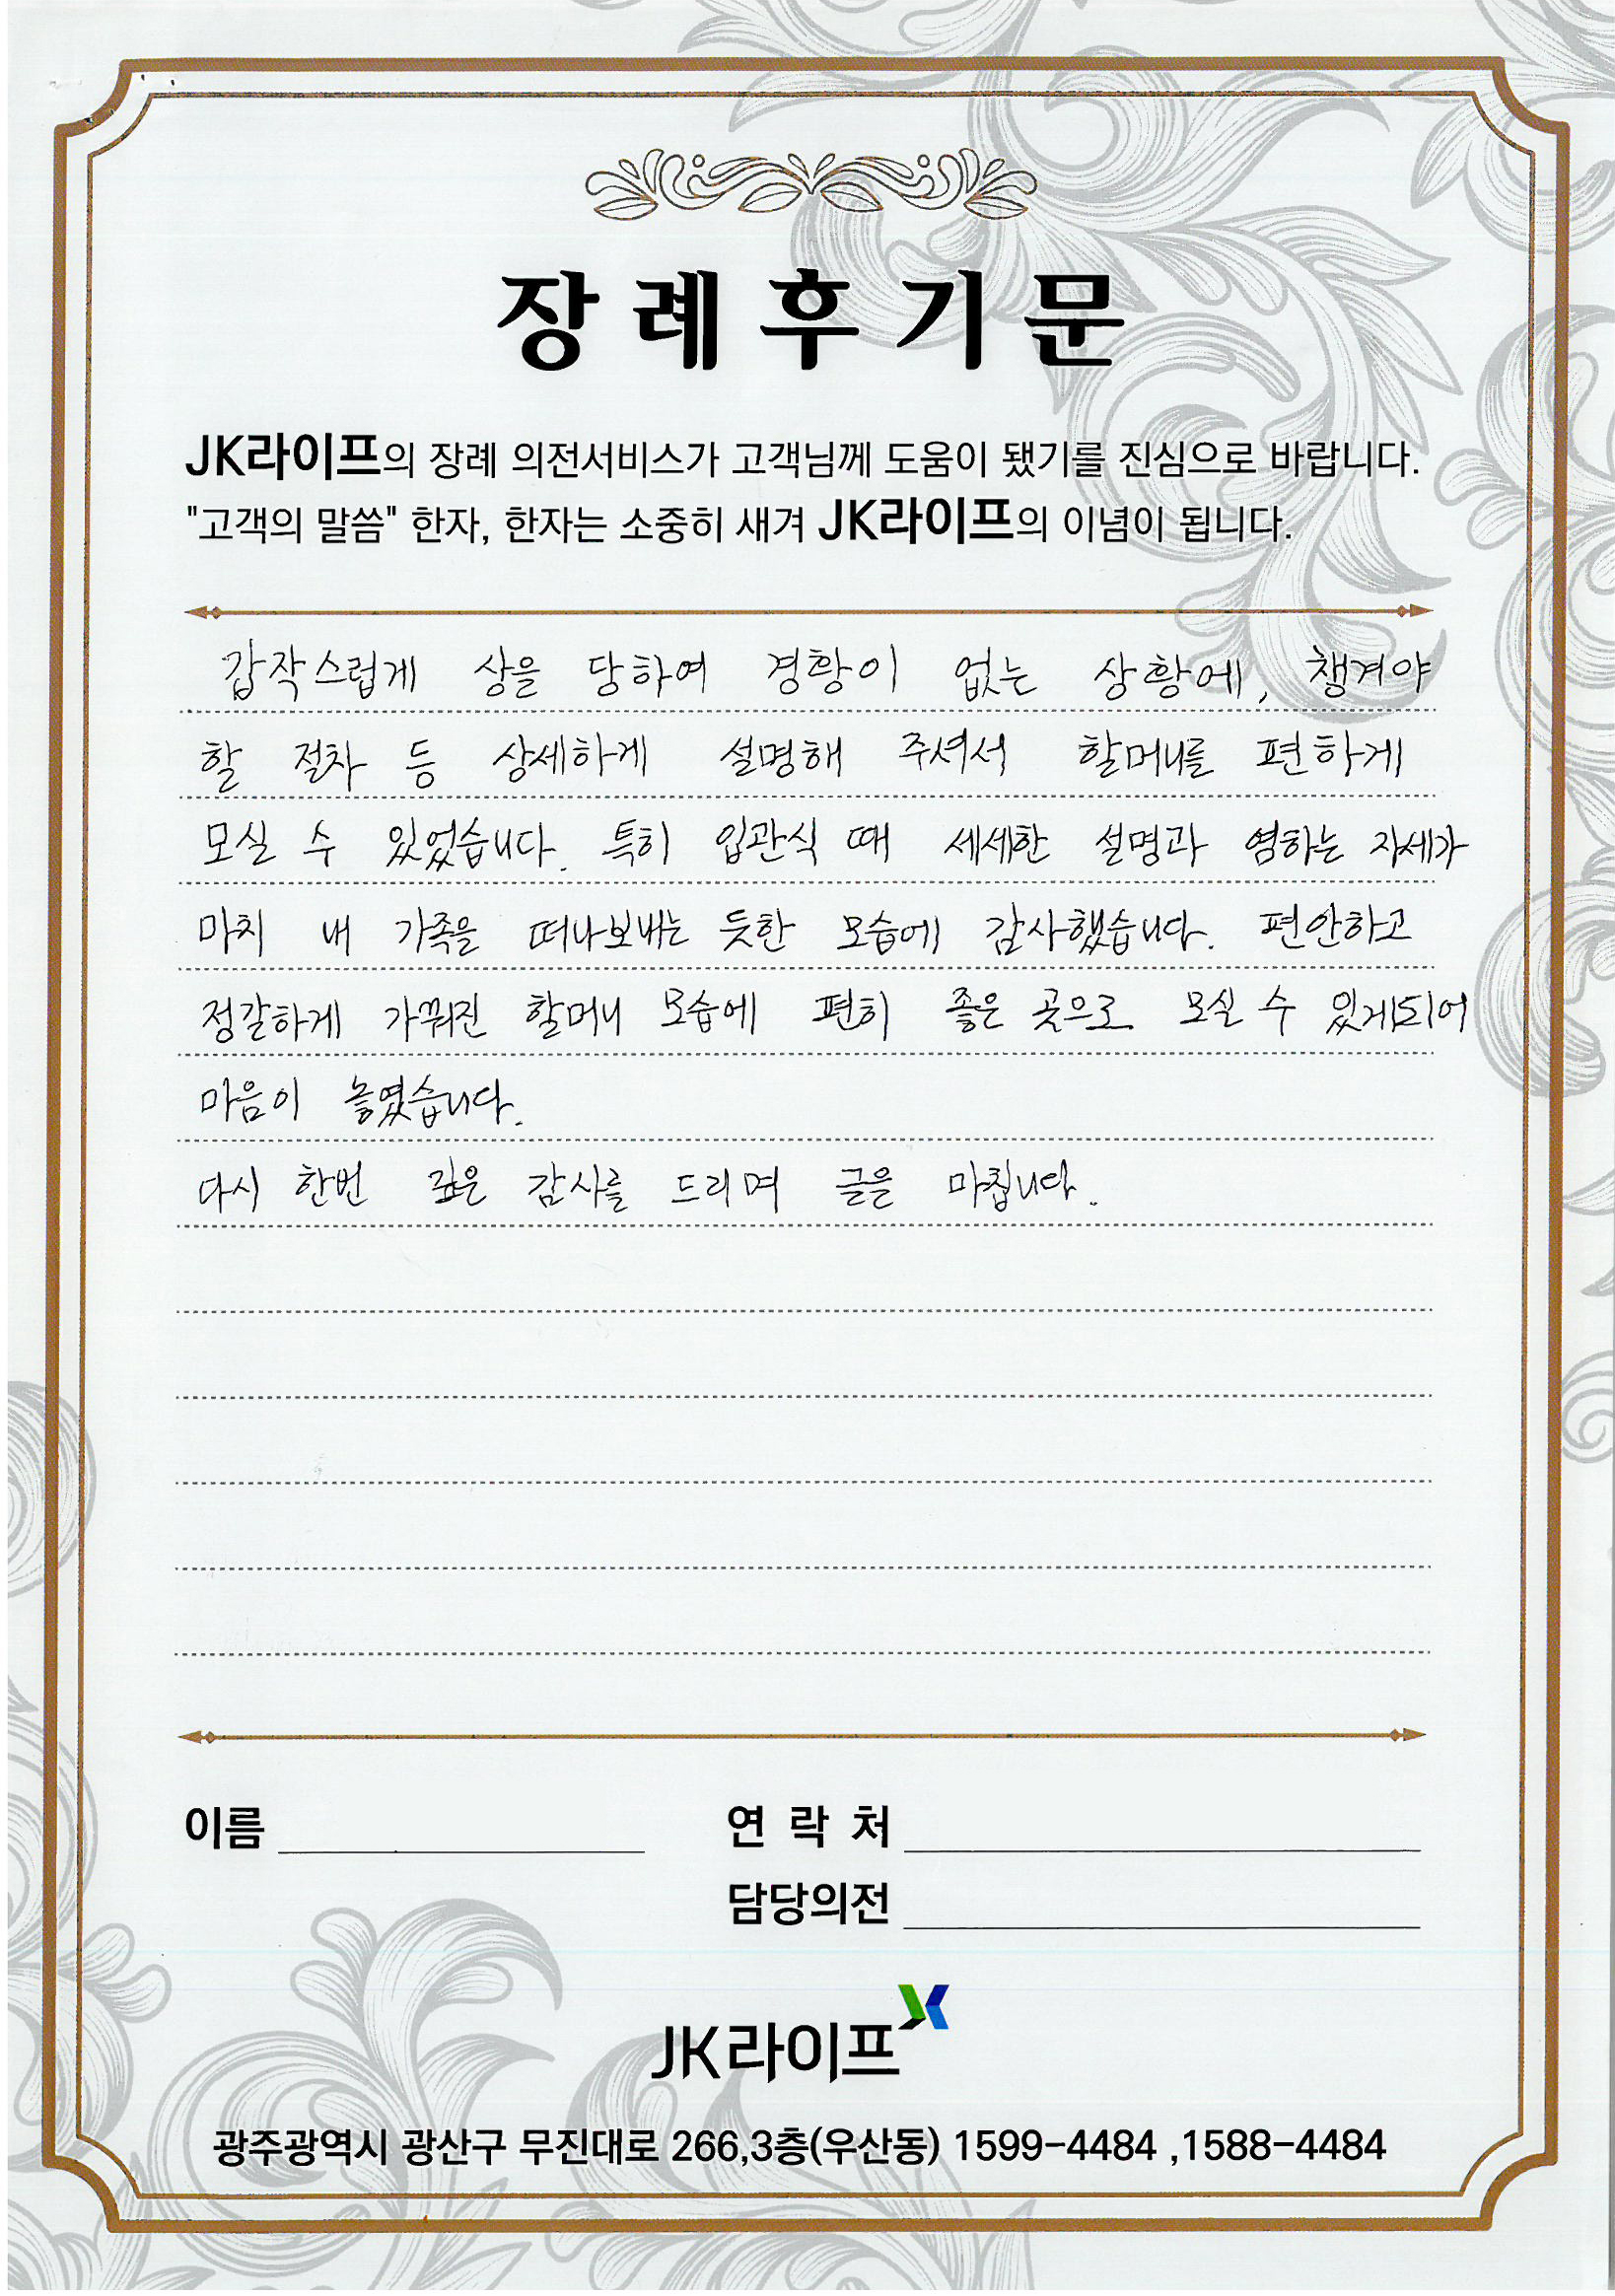 장례후기문
JK라이프의 장례 의전서비스가 고객님께 도움이 됐기를 진심으로 바랍니다.
"고객의 말씀" 한자, 한자는 소중히 새겨 JK라이프의 이념이 됩니다.
갑작스럽게 상을 당하여 경황이 없는 상황에, 챙겨야
할 절차 등 상세하게 설명해 주셔서 할머니를 편하게
모실 수 있었습니다. 특히 입관식 때 세세한 설명과 염하는 자세가
마치 내 가족을 떠나보내는 듯한 모습에 감사했습니다. 편안하고
정갈하게 가꿔진 할머니 모습에 편히 좋은 곳으로 모실 수 있게되어
마음이 놓였습니다.
다시 한번 깊은 감사를 드리며 글을 마칩니다.
이름 연락처
담당의전
JK라이프
광주광역시 광산구 무진대로 266,3층(우산동) 1599-4484 ,1588-4484